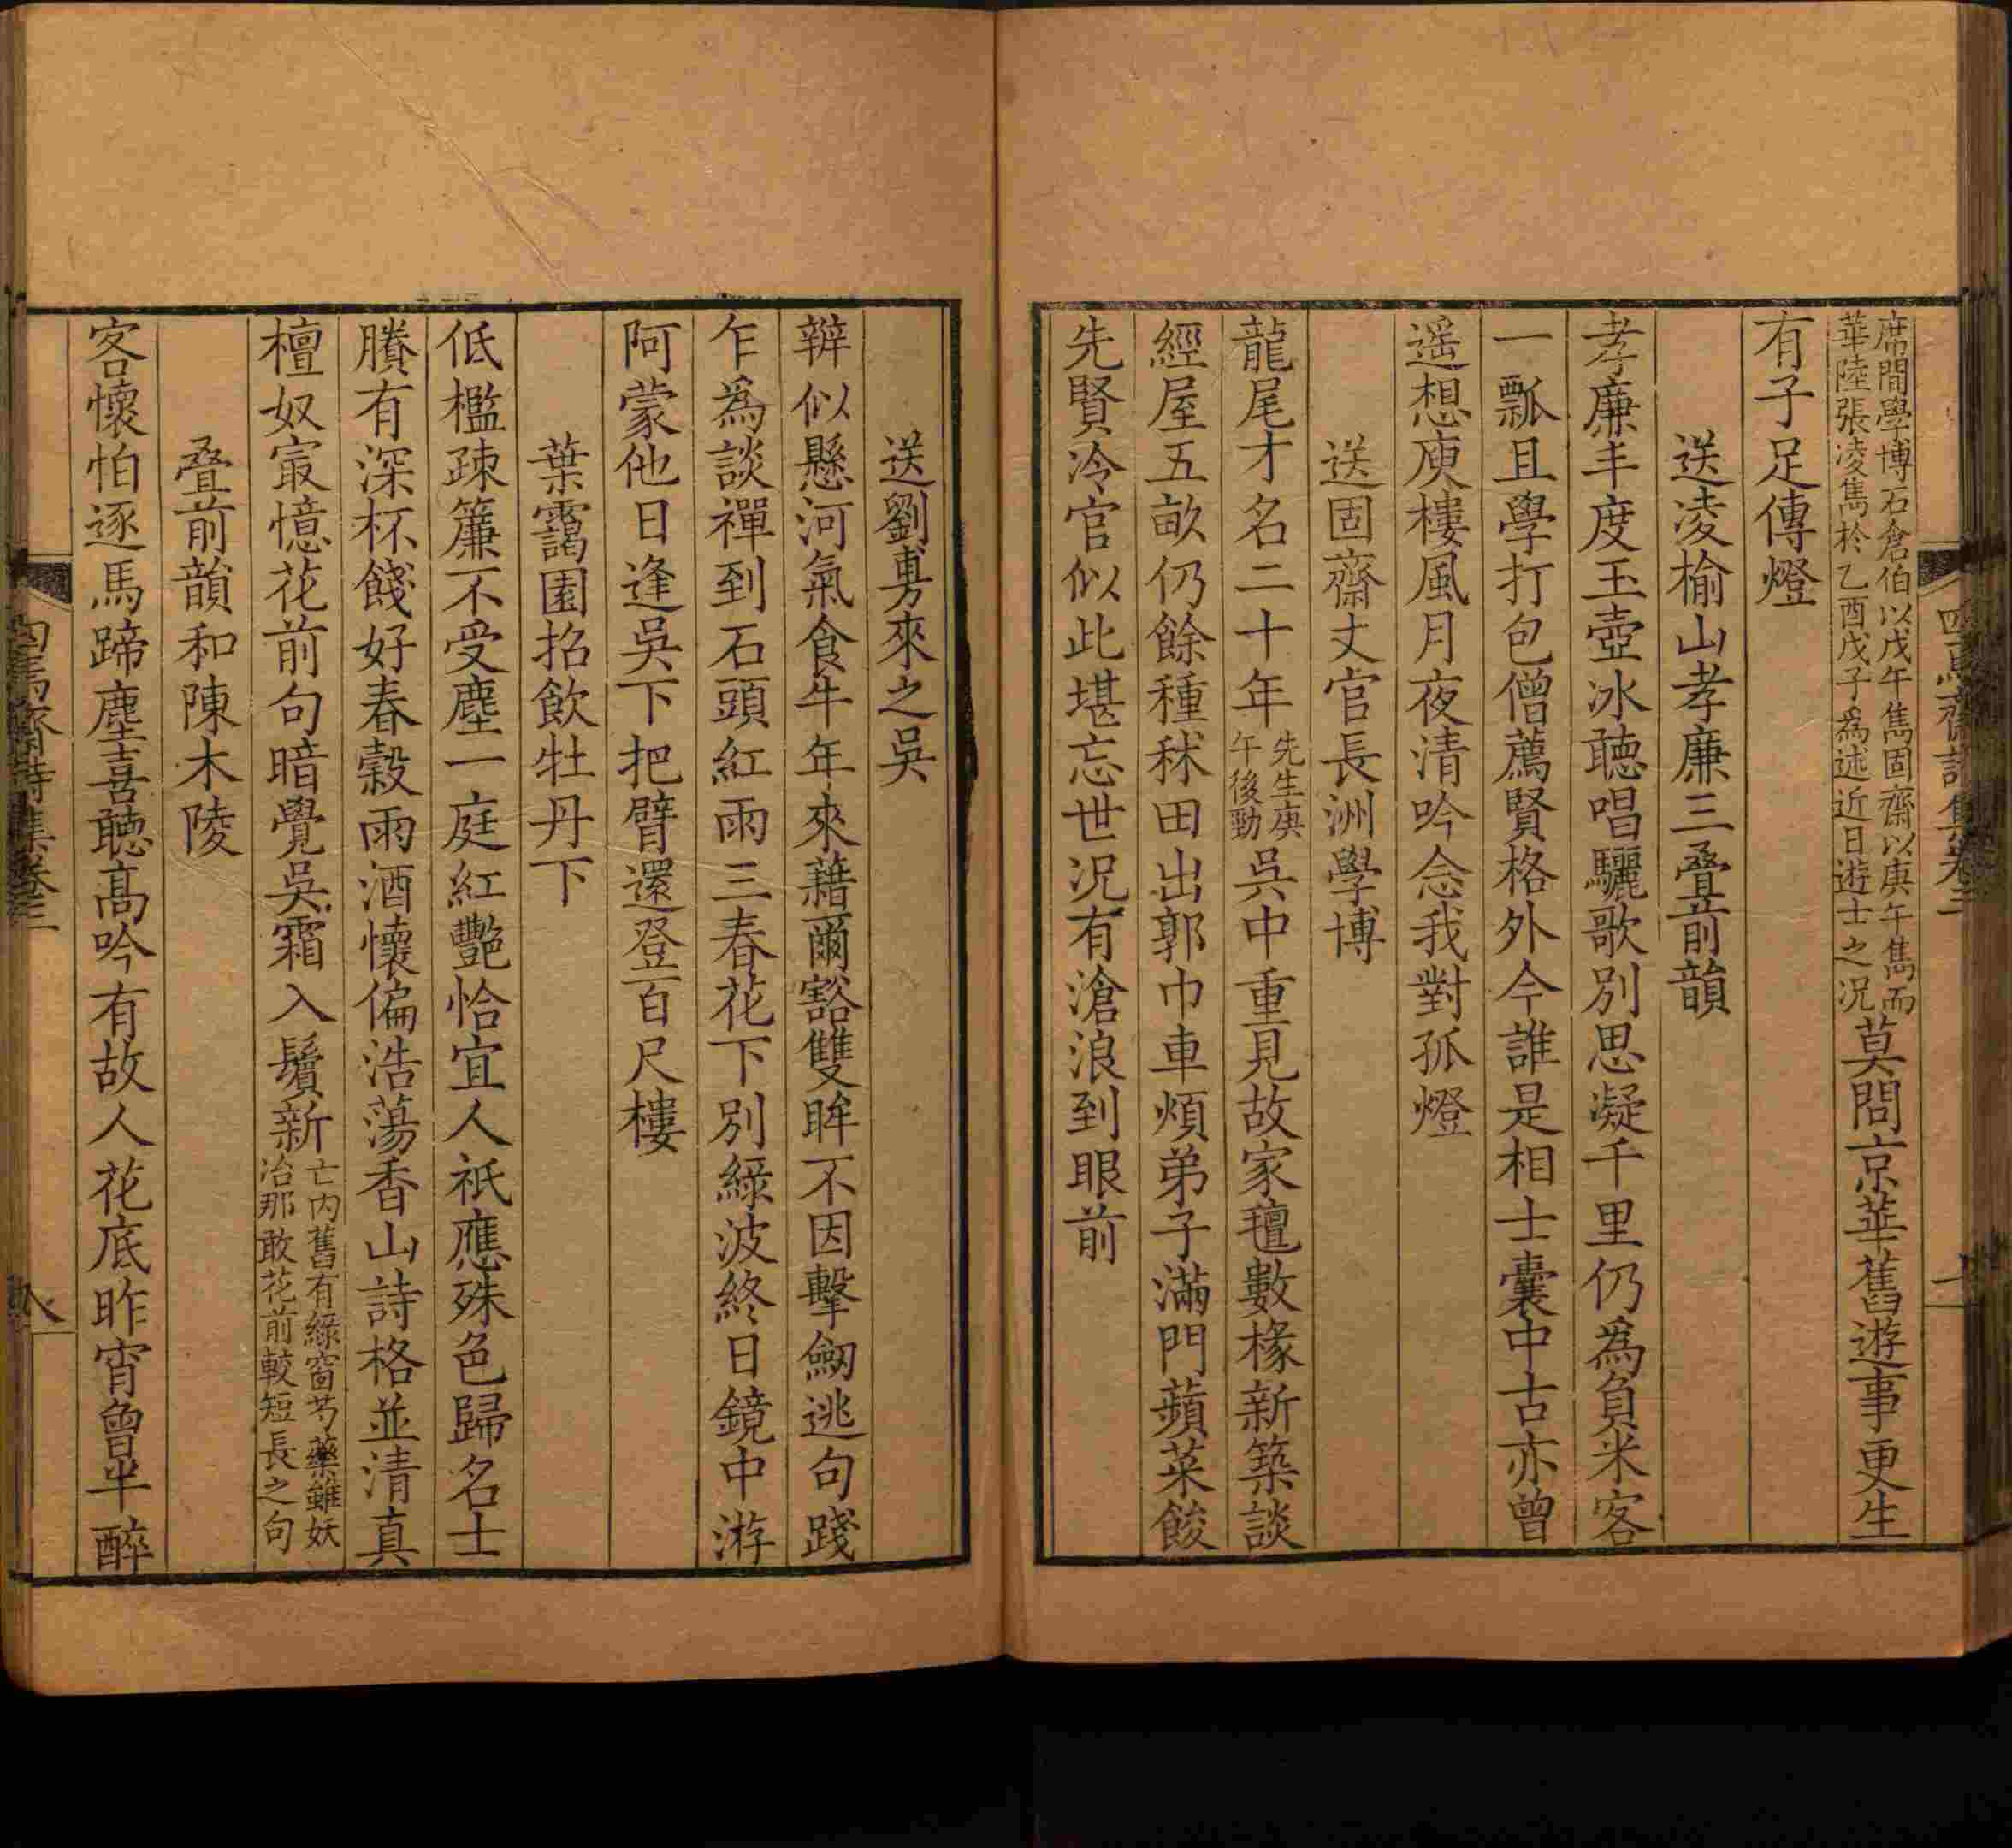 席間學博石倉伯以戊午雋固齋以庚午雋而
華陸張凌雋於乙酉戊子爲述近日遊士之况
莫問京華舊遊事更生
有子足傳燈
送凌榆山孝廉三疊前韻
孝廉丰度玉壺冰聽唱驪歌別思凝千里仍爲負米客
一瓢且學打包僧薦賢格外今誰是相士囊中古亦曾
遥想庾樓風月夜清吟念我對孤燈
送固齋丈官長洲學博
龍尾才名二十年
先生庚
午後勁
吳中重見故家氊數椽新築談
經屋五畝仍餘種秫田出郭巾車煩弟子滿門蘋菜餕
先賢冷官似此堪忘世况有滄浪到眼前
送劉旉來之吳
辨似懸河氣食牛年來藉爾豁雙眸不因擊劒逃句踐
乍爲談禪到石頭紅雨三春花下別綠波終日鏡中游
阿蒙他日逢吳下把臂還登百尺樓
葉靄園招飲牡丹下
低檻疎簾不受塵一庭紅艷恰宜人祇應殊色歸名士
賸有深杯餞好春穀雨酒懷偏浩蕩香山詩格並清真
檀奴㝡憶花前句暗覺吳霜入鬢新
亡内舊有綠窗芍藥雖妖
冶那敢花前較短長之句
疊前韻和陳木陵
客懷怕逐馬蹄塵喜聽高吟有故人花底昨宵曾半醉
詩集卷三
八